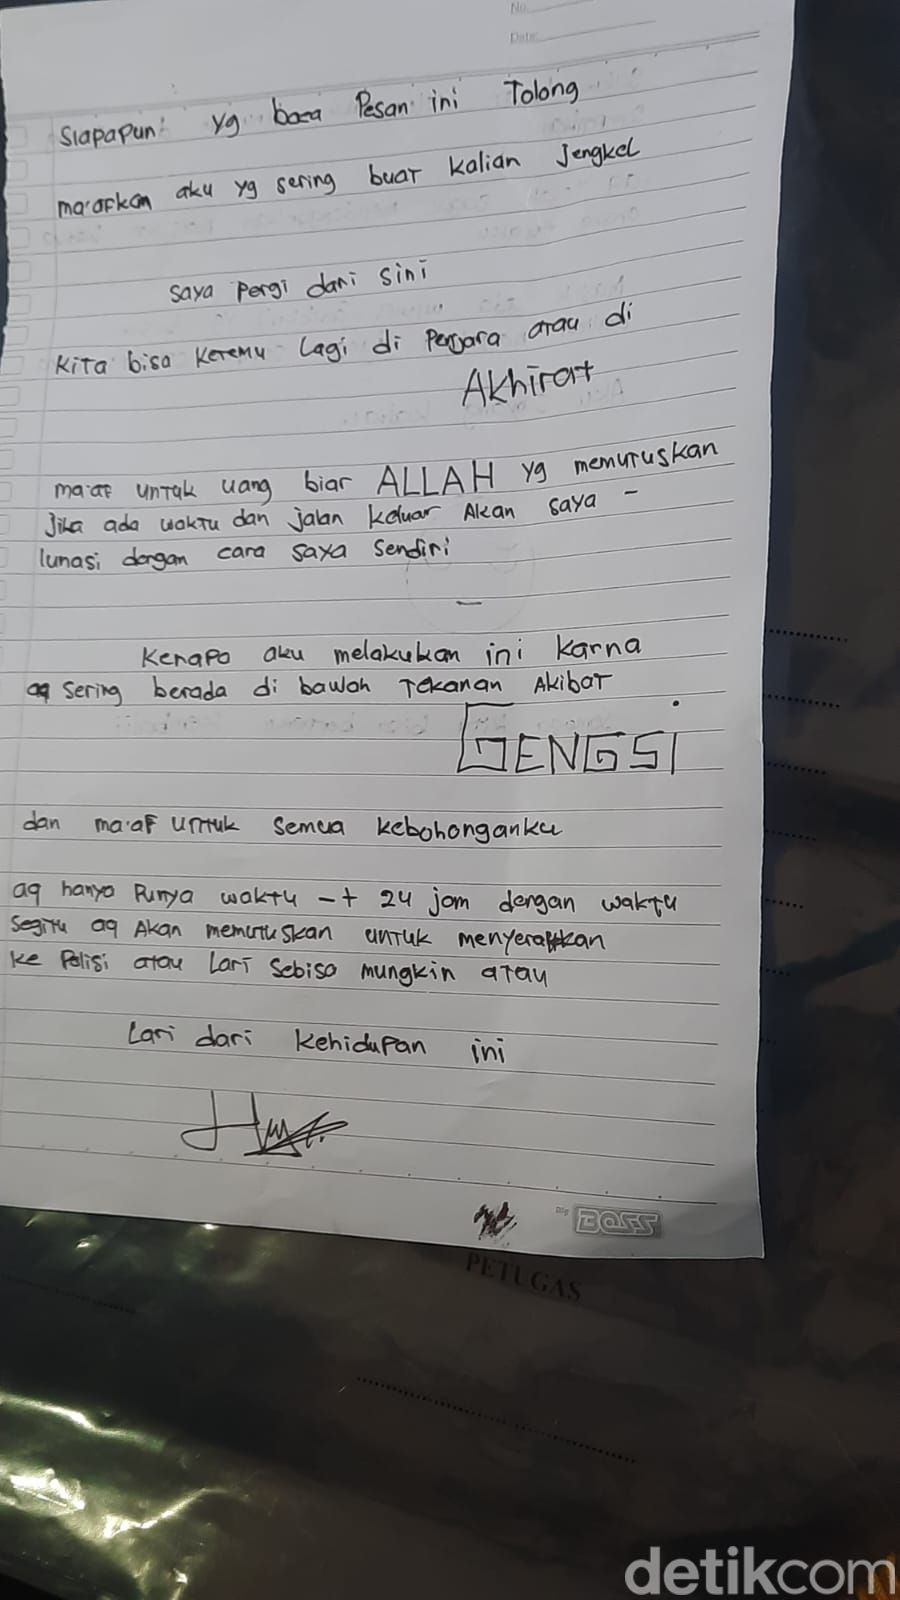 No.
Date:
Siapapun yg baca Pesan ini Tolong
ma'afkan aku yg sering buat kalian Jengkel
saya pergi dari sini
Kita bisa ketemu Lagi di Penjara atau di
Akhirat
ma'af untuk uang biar ALLAH yg memutuskan
Jika ada waktu dan jalan keluar Akan saya -
lunasi dengan cara saya sendiri
-
Kenapa aku melakukan ini karna
aq sering berada di bawah Tekanan Akibat
GENGSI
dan ma'af untuk semua kebohonganku
aq hanya Punya waktu -+ 24 jam dengan waktu
segitu aq Akan memutuskan untuk menyerahkan
ke Polisi atau Lari sebisa mungkin atau
Lari dari kehidupan ini
BOSS
PETUGAS
detikcom